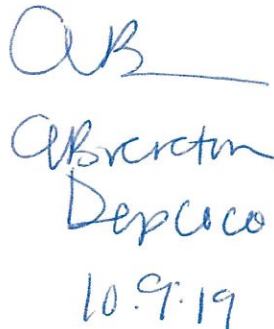 AB
ABrereton
Dep CoCo
10.9.19